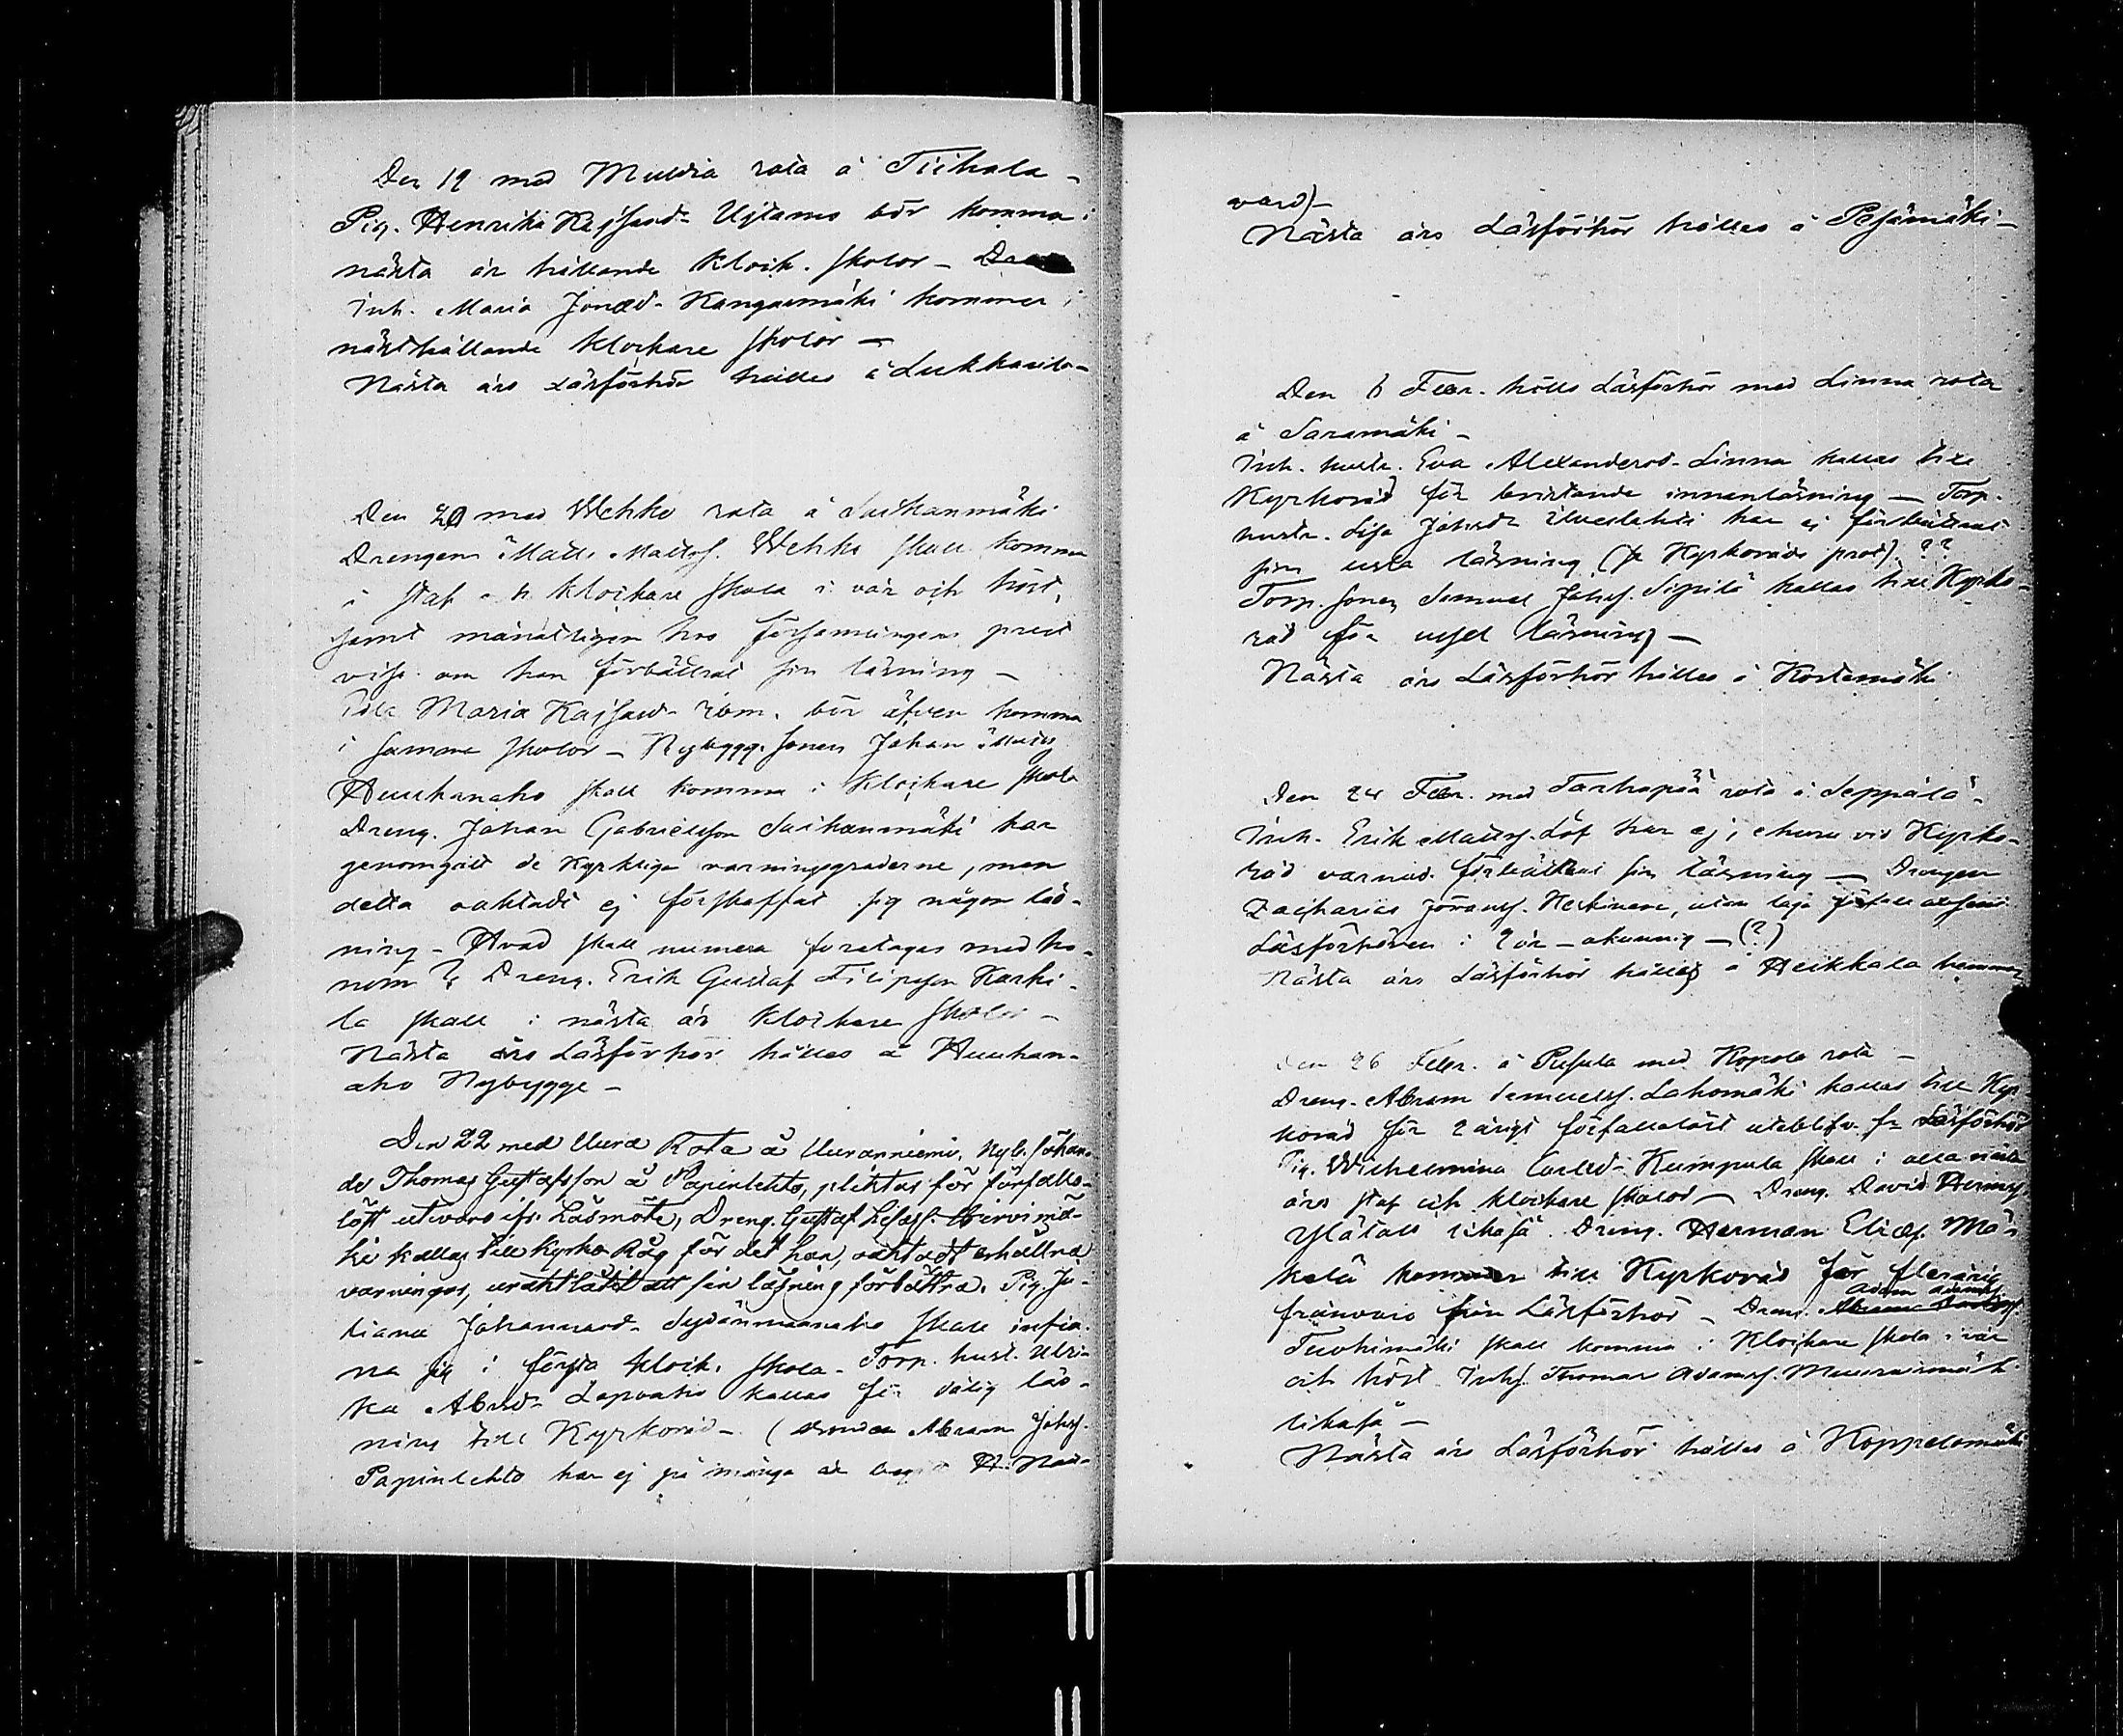 Den 19 med Muldia rota å Tiihala -
Pig. Henrika Kajsasd. Ujtamo bör komma i
nästa år hållande klock. skolor -
Inh. Maria Jonæd. Kangasmäki kommer i
nästhållande klockare skolor -
Nästa års Läsförhör hålles å Lukkarila -
Den 20 med Wehko rota å Suihanmäki
Drengen Matts Mattss. Wehko skall komma
i staf och klockare skola i vår och höst,
samt månatligen hos församlingens prest
visa om han förbättrat sin läsning -
Pig. Maria Kajsasd. ibm. bör äfven komma
i samma skolor - Nybygg. sonen Johan Matts.
Huuhanaho skall komma i klockare skola
Dreng. Johan Gabrielsson Suihanmäki har
genomgått de kyrkliga varningsgraderne, men
detta oaktadt ej förskaffat sig någon läs-
ning - Hvad skall numera foretagas med ho-
nom? Dreng. Erik Gustaf Filipsson Karki-
la skall i nästa års klockare skolor -
Nästa års Läsförhör hålles å Huuhan-
aho Nybygge -
Den 22 med Uura Rota å Uuranniemi. Nyb. sohan-
de Thomas Gustafsson å Papinlehto, pliktas för förfallo-
löst utevaro ifr. Läsmöte, Dreng. Gustaf Hirvimä-
ki kallas till Kyrko Råg för det han, oaktadt erhållna
varningar, uraktlåtit att sin läsning förbättra. Pig. Ju-
liana Johannesd. Sydänmaanaho skall infin-
na sig i första klock. skola - Torp. hust. Ulri-
ka Abrsd. Lapinaho kallas för dålig läs-
ning till Kyrkoråd - ( Abram Johss.
Papinlehto har ej på många år H. Natt-
vard) -
Nästa års Läsförhör hålles å Pesämäki -
Den 6 Febr. hölls Läsförhör med Linna rota
å Saramäki -
Inh. hustr. Eva Alexandersd. Linna kallas till
Kyrkoråd för bristande innanläsning - Torp.
hustr. Lisa Johsdr Ilveslahti har ej förbättrat
sin usla läsning (fr Kyrkoråds prot). ??
Torp. sonen Samuel Johss. Sipilä kallas till Kyrko-
råd för ussel läsning -
Nästa års Läsförhör hålles å Kostamäki
Den 24 Febr. med Tarhapää rota å Seppälä -
Inh. Erik Mattss. Löf har ej, ehuru vid Kyrko-
råd varnad förbättrat sin läsning - Drengen
Zacharias Göranss. Heskinen, utan laga förfall
Läsförhören i 2 år - okunnig - (?)
Nästa års Läsförhör hålles å Heikkala hemman
Den 26 Febr. å Pusula med Kopola rota -
Dreng. Abram Samuelss. Lahomäki kallas till Kyr-
koråd för 2 årigt förfallolöst utblifv. fr Läsförhör
Pig. Wilhelmina Carlsd. Kumpula skall i alla nästa
års staf och klockare skolor - Dreng. David Hermss.
Ylätalo likaså. Dreng. Herman Eliæs. Mä-
kelä kommer till Kyrkoråd för flerårig
frånvaro från Läsförhör - Dreng. Adam Adamss.
Tuohimäki skall komma i Klockare skola i vår
och höst Inhs. Thomas Adamss. Muuraismäki
likaså -
Nästa års Läsförhör hålles å Koppelomäki